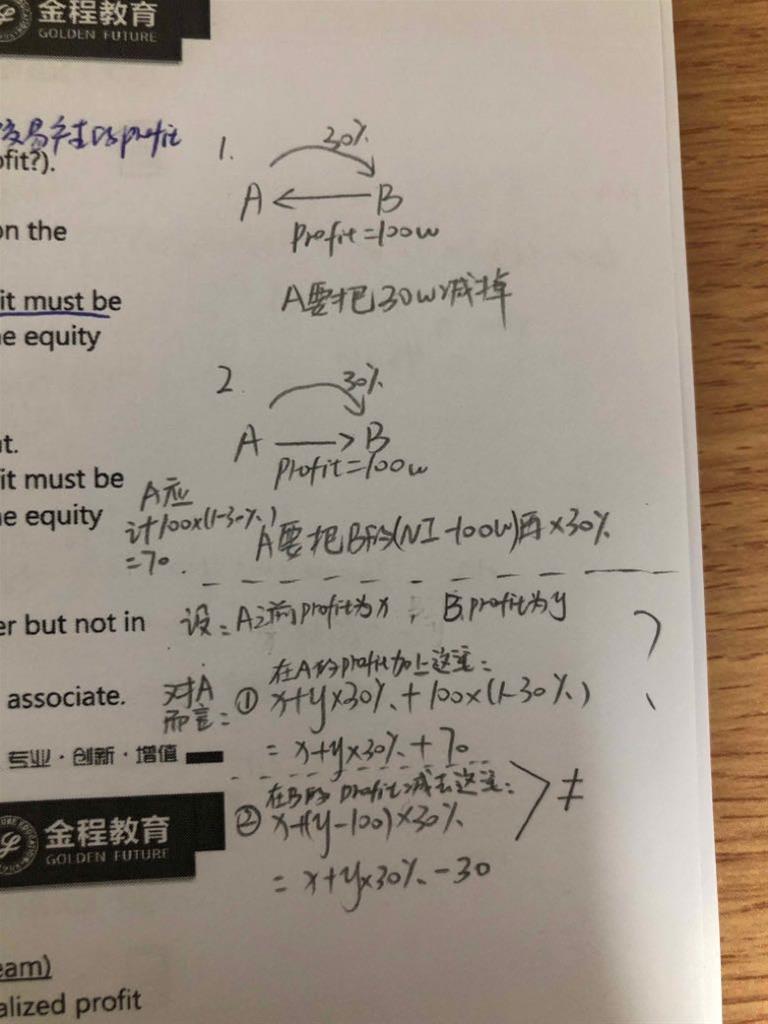 金程教育
GOLDEN FUTURE
交易产生的profit
ofit?).
on the
it must be
e equity
t.
it must be
e equity
er but not in
associate.
专业·创新·增值
金程教育
GOLDEN FUTURE
eam)
alized profit
1.
30%
A ← B
Profit=100w
A要把30w减掉
2.
30%
A → B
Profit=100w
A应
计100x(1-30%)
=70.
A要把B的(NI-100w)再×30%
设：A之前profit为x，B profit为y
?
对A
而言：
在A的profit加上这笔：
① x+y×30%+100×(1-30%)
= x+y×30%+70
在B的profit减去这笔：
② x+(y-100)×30%
= x+y×30%-30
≠